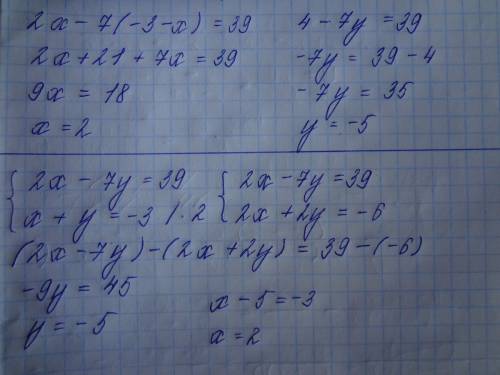 2x - 7(-3-x) = 39
2x + 21 + 7x = 39
9x = 18
x = 2
4 - 7y = 39
-7y = 39 - 4
-7y = 35
y = -5
{ 2x - 7y = 39 { 2x - 7y = 39
x + y = -3 | · 2 2x + 2y = -6
(2x - 7y) - (2x + 2y) = 39 - (-6)
-9y = 45
y = -5
x - 5 = -3
x = 2